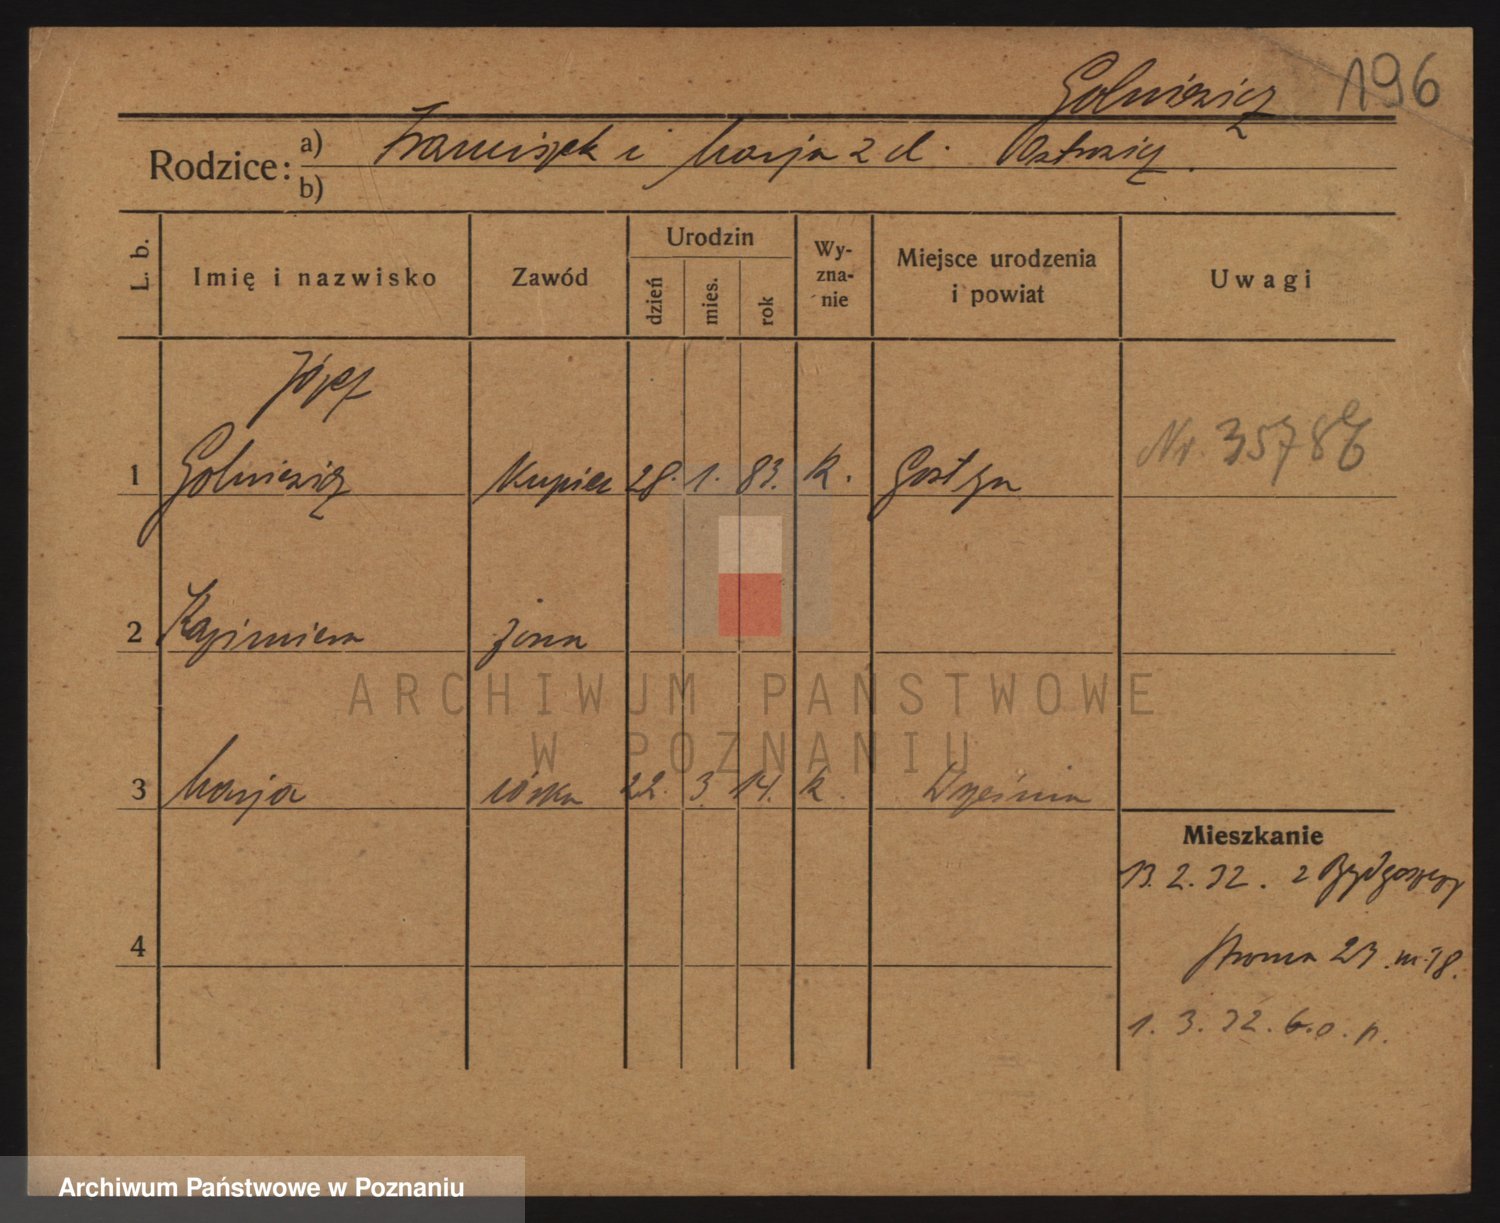 196
Golniewicz
Rodzice: a) Franciszek i Marja z d. Ostrowicz.
b)
L. b. Imię i nazwisko Zawód Urodzin dzień mies. rok Wy-zna-nie Miejsce urodzenia i powiat Uwagi
Józef
1 Golniewicz Kupiec 28. 1. 83. k. Gostyn Nr. 35786
2 Kazimiera żona
ARCHIWUM PAŃSTWOWE
W POZNANIU
3 Marja córka 22. 3. 14. k Września
Mieszkanie
13. 2. 32. z Bydgoszczy
4
Stroma 23. m. 18.
1. 3. 32. b. o. p.
Archiwum Państwowe w Poznaniu